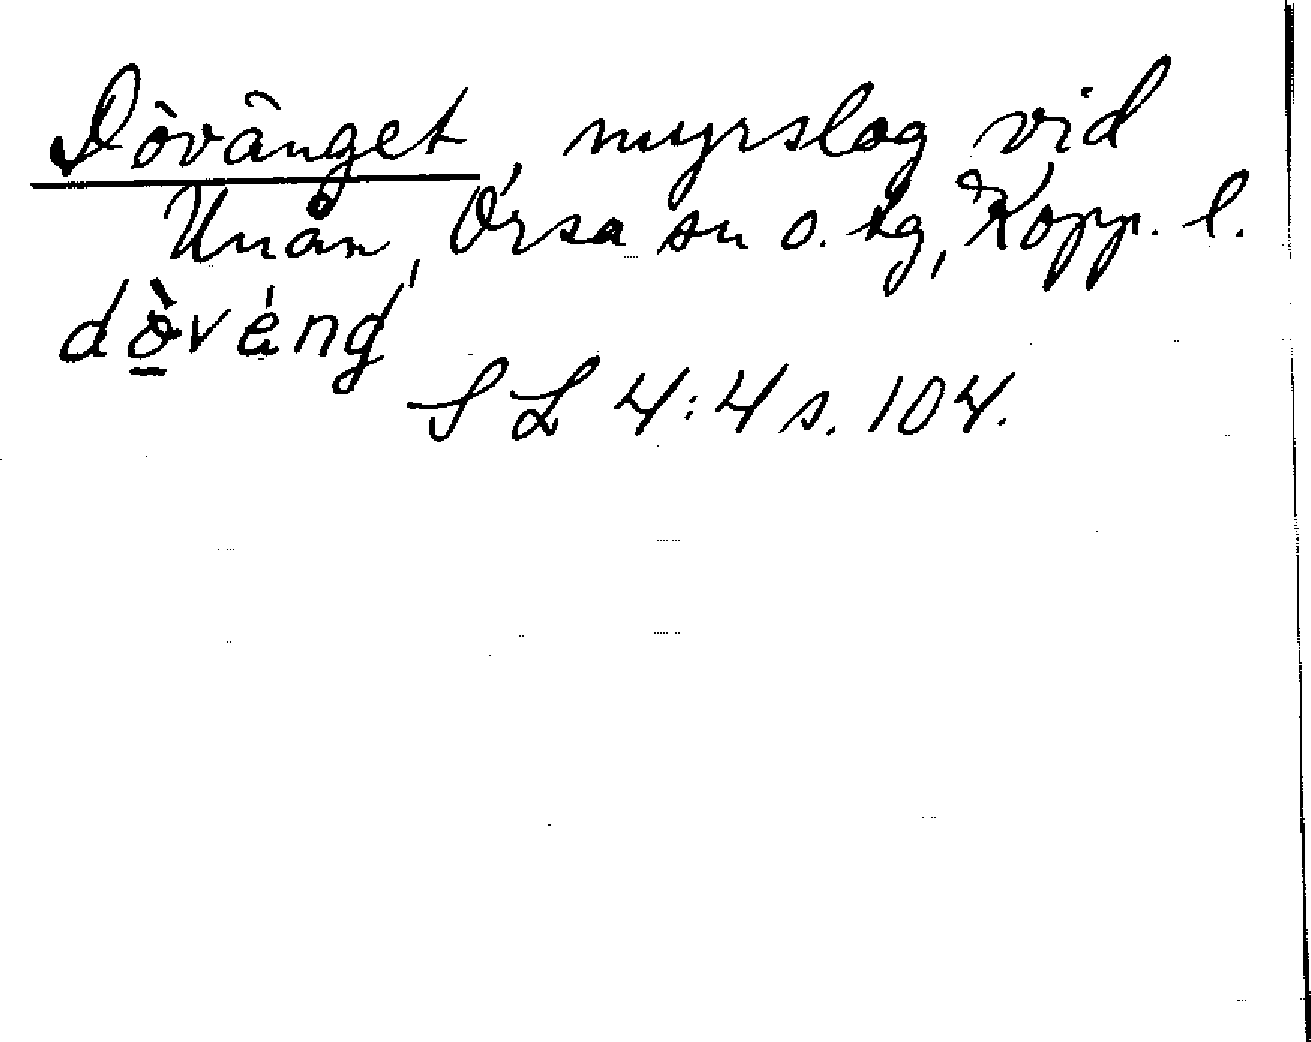 Dövänget, myrslog vid
Unån, Orsa sn o. tg, Kopp. l.
dò̱véng
SL 4:4 s. 104.